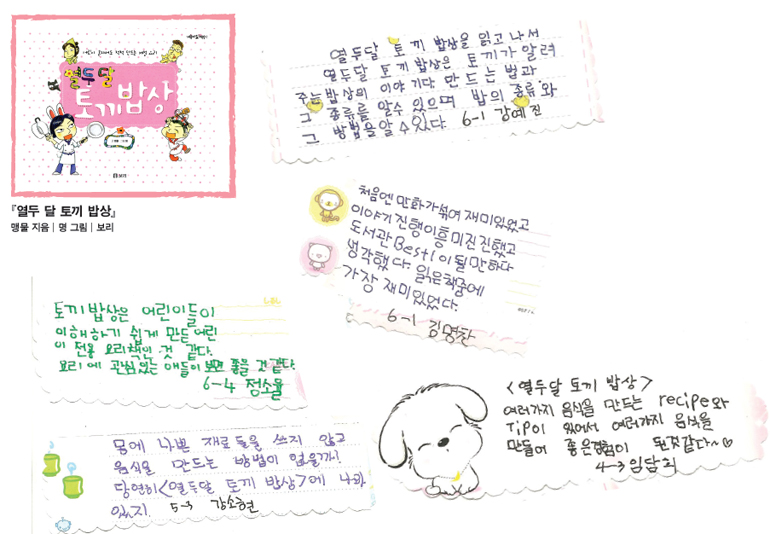 열두 달
토끼 밥상
보리
『열두 달 토끼 밥상』
맹물 지음 | 명 그림 | 보리
열두달 토끼 밥상을 읽고 나서
열두달 토끼 밥상은 토끼가 알려
주는 밥상의 이야기다. 만드는 법과
그 종류를 알수 있으며 밥의 종류와
그 방법을 알 수 있다. 6-1 강예진
처음엔 만화가 섞여 재미있었고
이야기 진행이 흥미진진했고
도서관 Best1이 될만하다
생각했다. 읽은책중에
가장 재미있었다.
6-1 김명찬
토끼 밥상은 어린이들이
이해하기 쉽게 만든 어린
이 전용 요리책인 것 같다.
요리에 관심있는 애들이 보면 좋을 것 같다.
6-4 정소율
몸에 나쁜 재료들을 쓰지 않고
음식을 만드는 방법이 없을까?
당연히 <열두달 토끼 밥상>에 나와
있지. 5-3 강소현
<열두달 토끼 밥상>
여러가지 음식을 만드는 recipe와
Tip이 있어서 여러가지 음식을
만들어 좋은경험이 된것같다^^♡
4-3 임담희